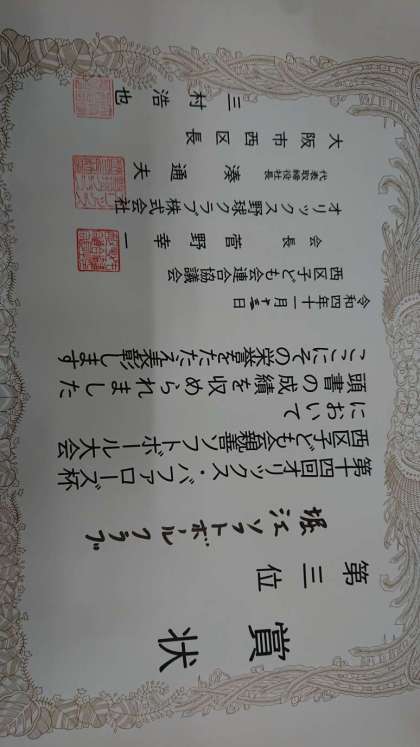 賞状
第三位
堀江ソフトボールクラブ
第十四回オリックス・バファローズ杯
西区子ども会親善ソフトボール大会
において
頭書の成績を収められました
ここにその栄誉をたたえ表彰します
令和四年十一月十三日
西区子ども会連合協議会
会長 菅野幸一
オリックス野球クラブ株式会社
代表取締役社長 湊通夫
大阪市西区長
三村浩也